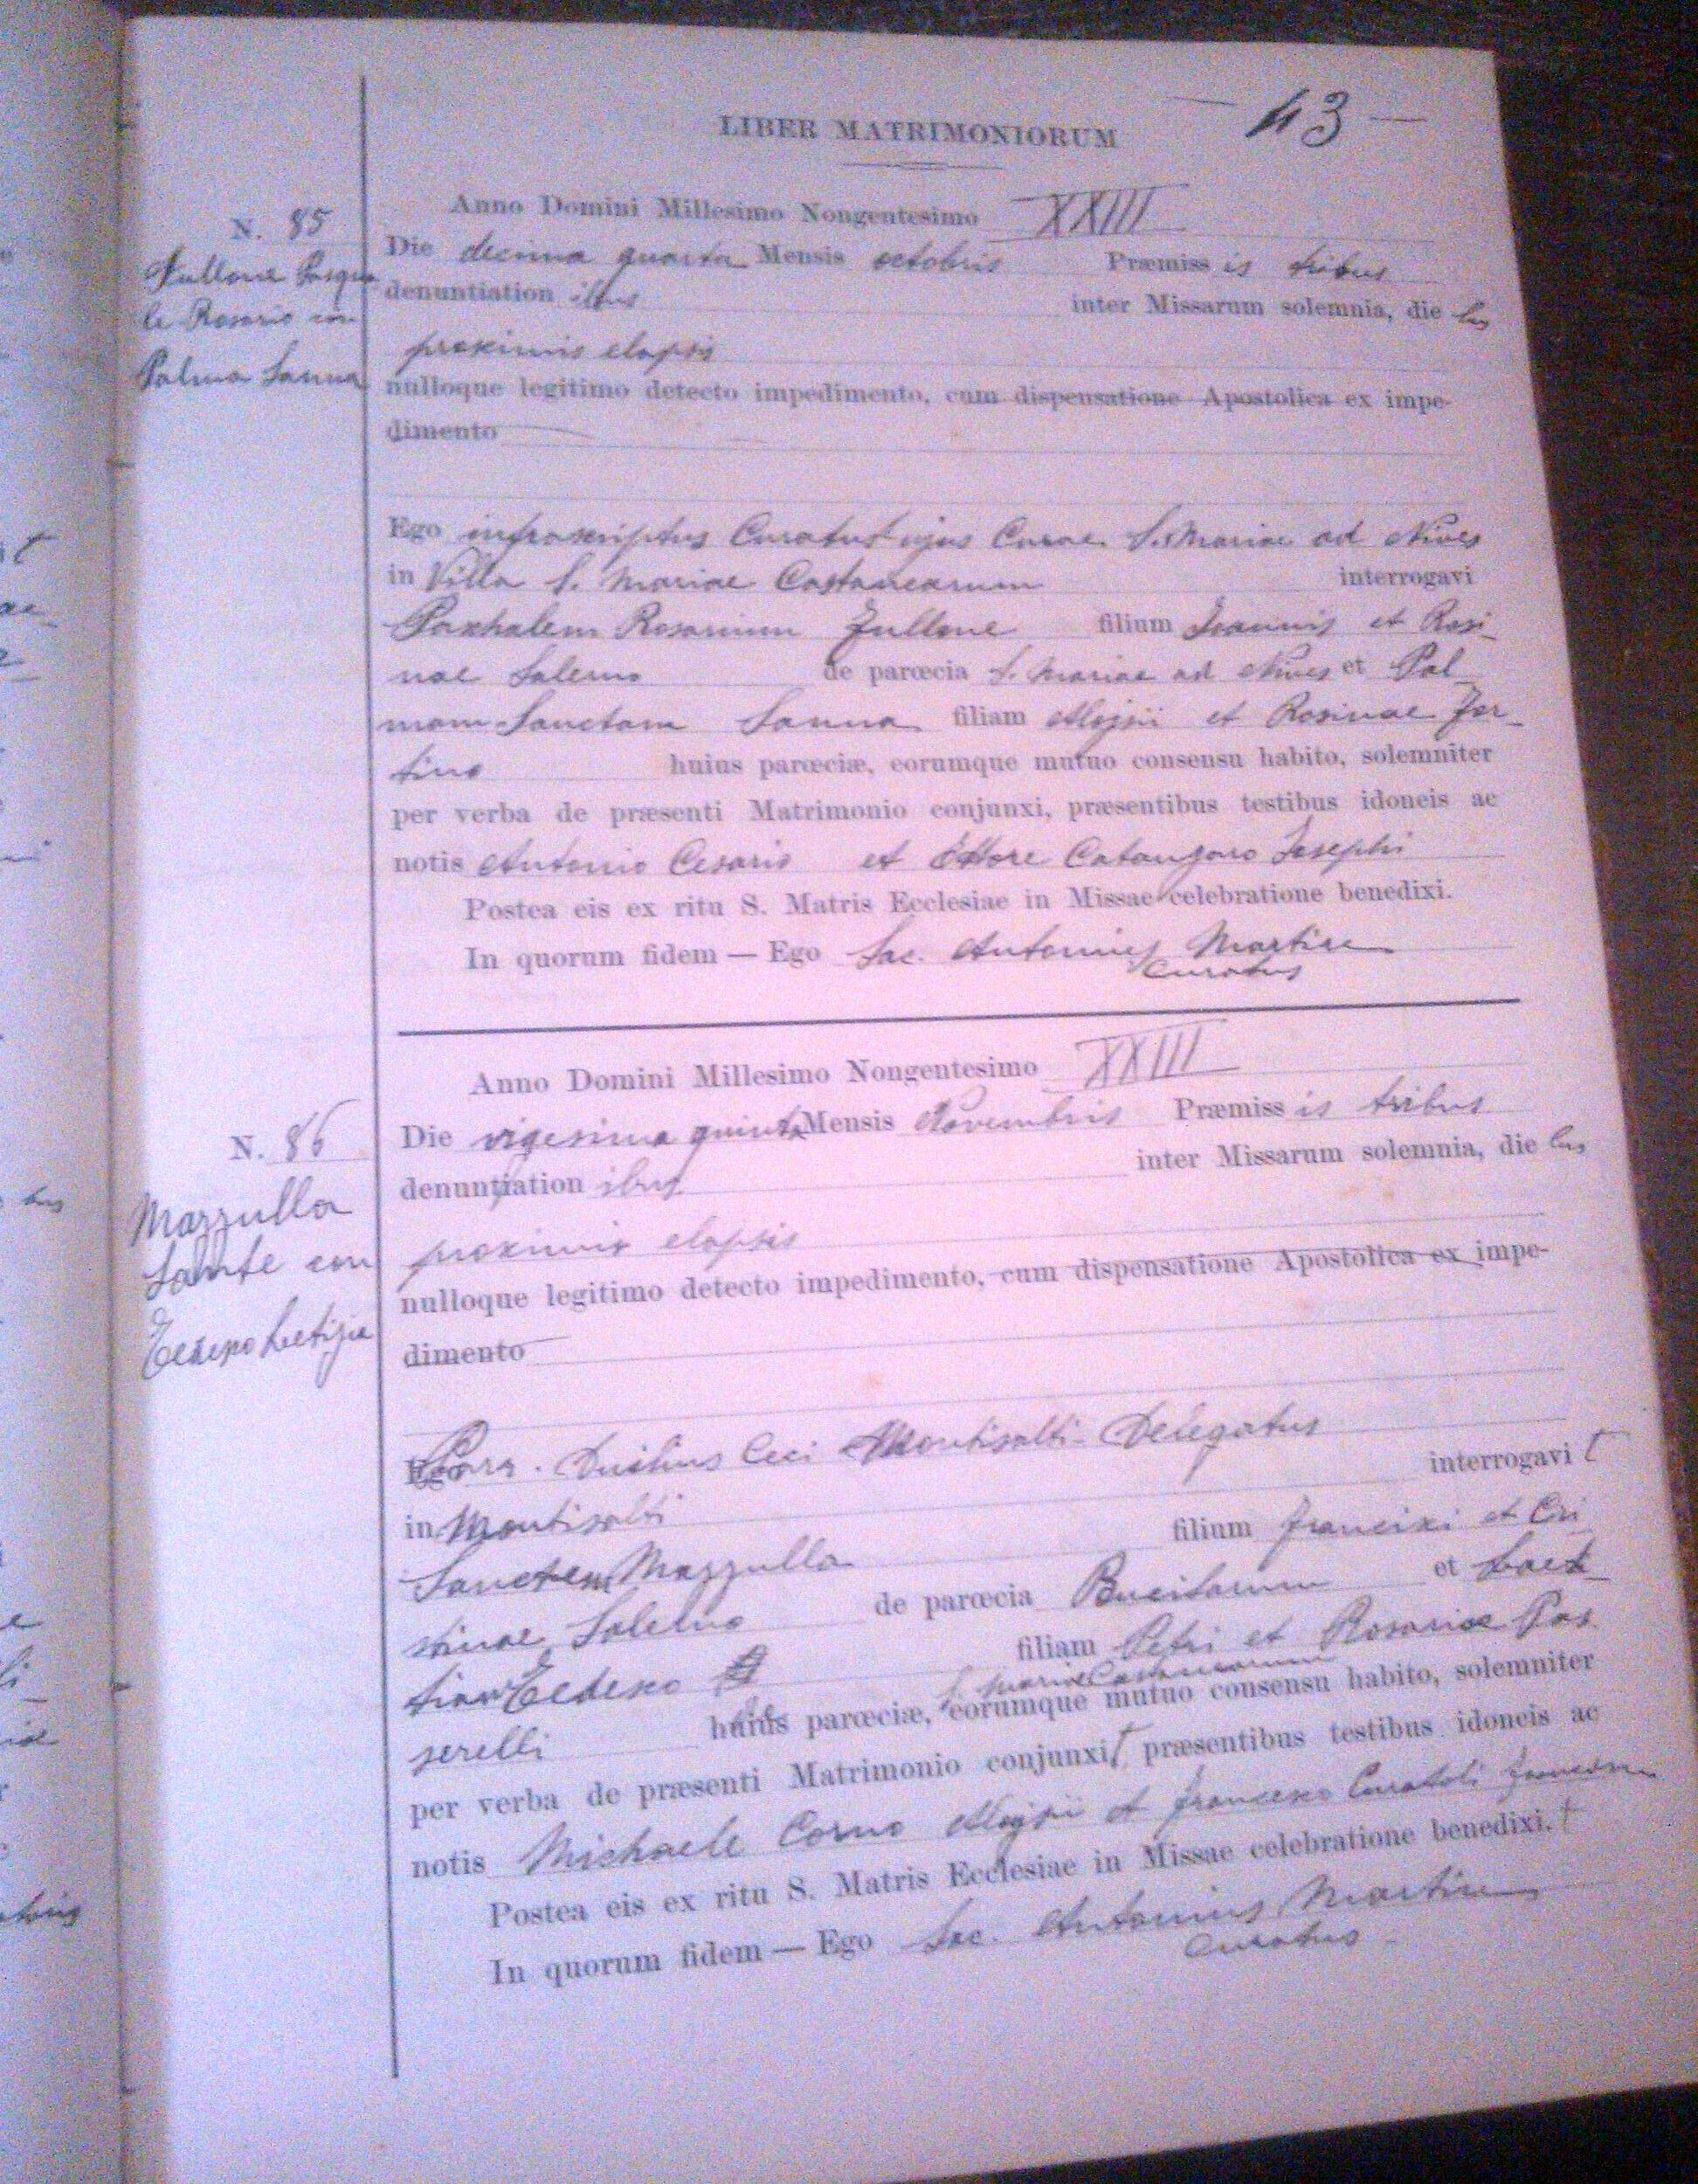 43
LIBER MATRIMONIORUM
Anno Domini Millesimo Nongentesimo XXIII
N. 85
Zullone Pasqua
le Rosario con
Palma Sanna
Die decima quarta Mensis octobris Præmiss is tribus
denuntiation ibus inter Missarum solemnia, die bus
proximis elapsis
nulloque legitimo detecto impedimento, cum dispensatione Apostolica ex impe-
dimento
Ego infrascriptus Curatus ujus Curae S. Mariae ad Nives
in Villa S. Mariae Castanearum interrogavi
Paskalem Rosarium Zullone filium Joannis et Rosi
nae Salerno de parœcia S. Mariae ad Nives et Pal
mam Sanctam Sanna filiam Aloysii et Rosinae For
tino huius parœciæ, eorumque mutuo consensu habito, solemniter
per verba de præsenti Matrimonio conjunxi, præsentibus testibus idoneis ac
notis Antonio Cesario et Ettore Catanzaro Josephi
Postea eis ex ritu S. Matris Ecclesiae in Missae celebratione benedixi.
In quorum fidem — Ego Sac. Antonius Martire
Curatus
Anno Domini Millesimo Nongentesimo XXIII
N. 86
Mazzulla
Sante con
Tedesco Letizia
Die vigesima quinta Mensis Novembris Præmiss is tribus
denuntiation ibus inter Missarum solemnia, die bus
proximis elapsis
nulloque legitimo detecto impedimento, cum dispensatione Apostolica ex impe-
dimento
Parr. Duilius Ceci Montisalti Delegatus
in Montisalti interrogavit
Sanctem Mazzulla filium Francisci et Cri
stinae Salerno de parœcia Bucitarum et Laeti
tiam Tedesco filiam Petri et Rosariae Pas
S. Mariae Castanearum
serelli huius parœciæ, eorumque mutuo consensu habito, solemniter
per verba de præsenti Matrimonio conjunxit præsentibus testibus idoneis ac
notis Michaele Corno Aloysii et Francesco Curatoli
Postea eis ex ritu S. Matris Ecclesiae in Missae celebratione benedixi.t
In quorum fidem — Ego Sac. Antonius Martire
Curatus